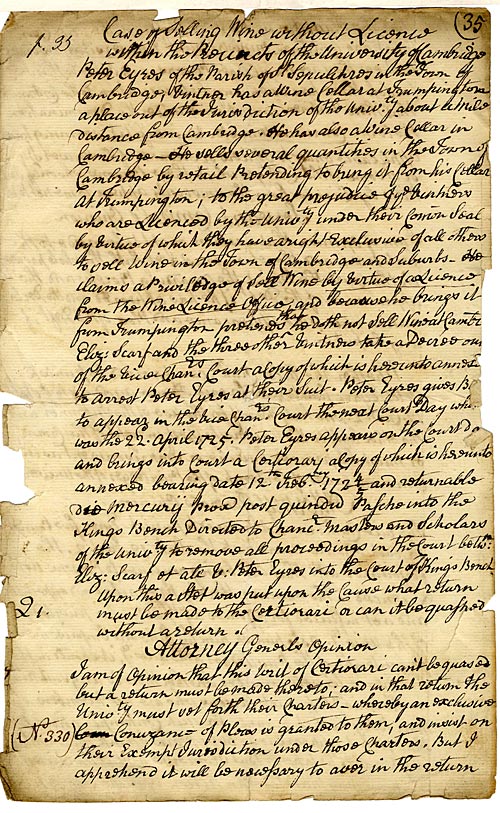 p. 35
(35
Case of Selling Wine without Licence
within the Precincts of the University of Cambridge
Peter Eyres of the Parish of St Sepulchres in the Town of
Cambridge, Vintner has a Wine Cellar at Trumpington
a place out of the Jurisdiction of the Univ:ty about a Mile
distance from Cambridge. He has also a Wine Cellar in
Cambridge - He sells several quantities in the Town of
Cambridge by retail Pretending to bring it from his Cellar
at Trumpington; to the great prejudice of ye Vintners
who are Licenced by the Univ:ty under their Comon Seal
by Virtue of which they have a right Exclusive of all others
to sell Wine in the Town of Cambridge and Suburbs - He
claims a Priviledge of Sell Wine by Virtue of a Licence
from the Wine Licence Office, and because he brings it
from Trumpington pretends that he doth not Sell Wine at Cambr
Eliz: Scarf and the three other Vintners take a Decree out
of the Vice Chanrs Court a Copy of which is hereunto annexd
to arrest Peter Eyres at their Suit. Peter Eyres gives B
to appear in the Vice Chanrs Court the next Court Day whi
was the 22d April 1725. Peter Eyres appears on the Court da
and brings into Court a Certiorary a Copy of which is hereunto
annexed bearing date 12th Feb: 1724 and returnable
die Mercurij prox post quinden Pasche into the
Kings Bench Directed to Chancr Masters and Scholars
of the Univ:ty to remove all proceedings in the Court betw:
Eliz: Scarf et ale & Peter Eyres into the Court of Kings Bench
Upon this a Stet was put upon the Cause what return
Q 1.
must be made to the Certiorari or can it be quashed
without a return.
Attorney Generls Opinion
I am of Opinion that this Writ of Certiorari can't be quased
but a return must be made thereto; and in that return the
Univ:ty must set forth their Charters - whereby an exclusive
(No 330)
Conuzance of Pleas is granted to them, and insist on
their Exempt Jurisdiction under those Charters. But I
apprehend it will be necessary to aver in the return